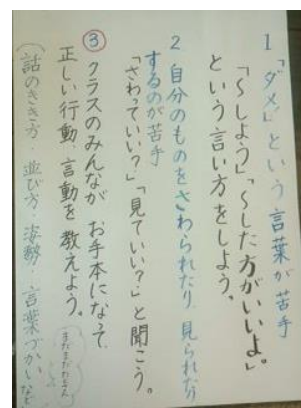 1 「ダメ」という言葉が苦手
「〜しよう」「〜した方がいいよ。」
という言い方をしよう。
2 自分のものをさわられたり、見られたり
するのが苦手
「さわっていい?」「見ていい?」と聞こう。
③ クラスのみんながお手本になって、
正しい行動、言動を教えよう。
(話のきき方・並び方・姿勢・言葉づかいなど
まだまだたくさん